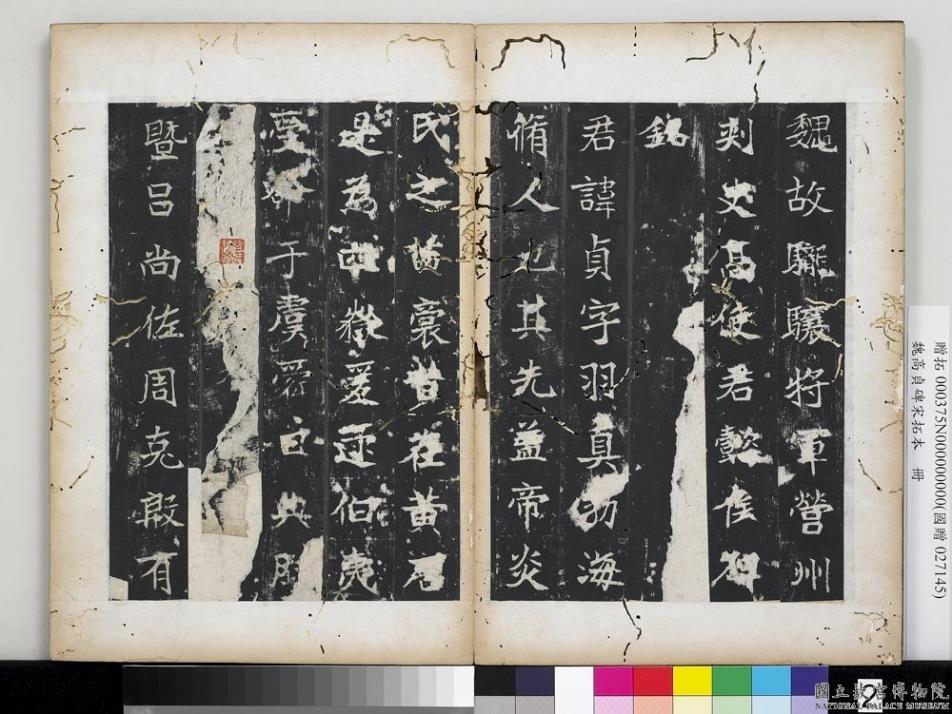 魏故驤將軍營州
刾史高使君懿侯碑
銘
君諱貞字羽真勃海
脩人也其先盖帝炎
氏之苗裔昔在黃唐
是為四嶽爰逮伯夷
受命于虞爰曰典
暨呂尚佐周克殷有
贈拓 000375N000000000(國贈 027145)
魏高貞碑宋拓本 冊
國立故宮博物院
NATIONAL PALACE MUSEUM